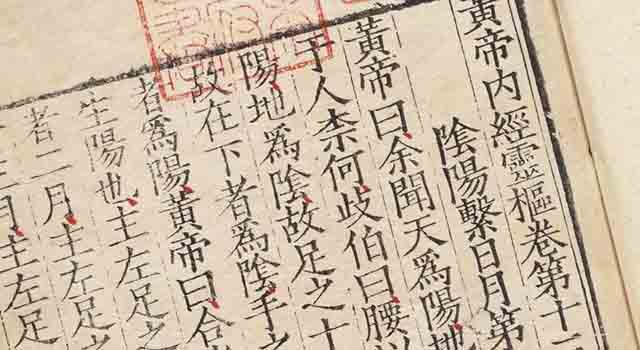 黃帝内經靈樞卷第十
陰陽繫日月第
黃帝曰余聞天爲陽地
于人柰何歧伯曰腰以
陽地爲陰故足之十
故在下者爲陰手之
者爲陽黃帝曰合
生陽也主左足之
者二月主左足之
月主左足